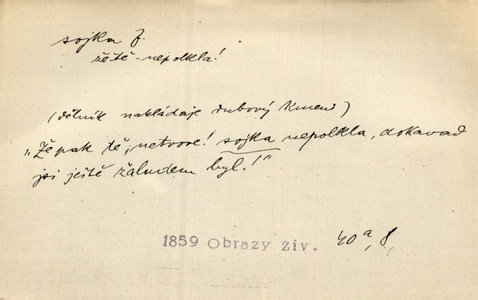 sojka f.
žětě-nepolkla!
(dělník nakládaje dubový kmen)
„Že pak tě, netvore! sojka nepolkla, dokavad
jsi ještě žaludem byl!"
1859 Obrazy živ. 40a, 8,